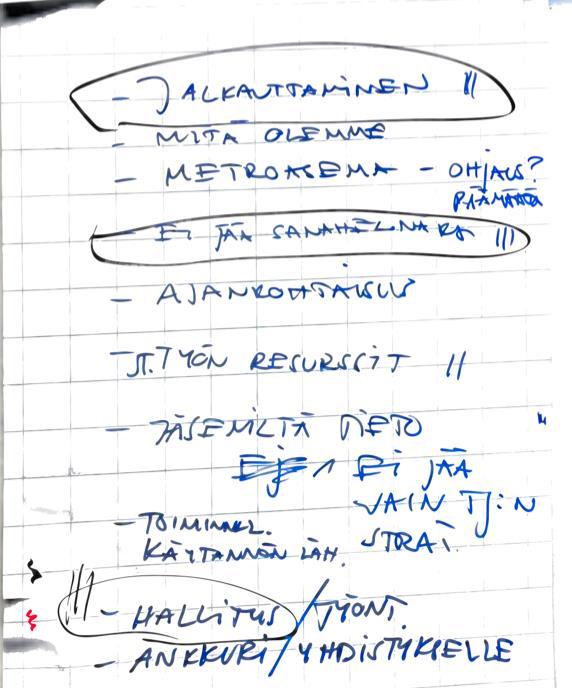 - JALKAUTTAMINEN ||
- MITÄ OLEMME
- METROASEMA - OHJAUS?
PÄÄMÄÄRÄ
- EI JÄÄ SANAHELINÄKSI |||
- AJANKOHTAISUUS
- ST.TYÖN RESURSSIT ||
- JÄSENILTÄ TIETO "
EI JÄÄ
VAIN TJ:N
STRAT.
- TOIMINNAL.
KÄYTÄNNÖN LÄH.
||| - HALLITUS/TYÖNT.
- ANKKURI/YHDISTYKSELLE